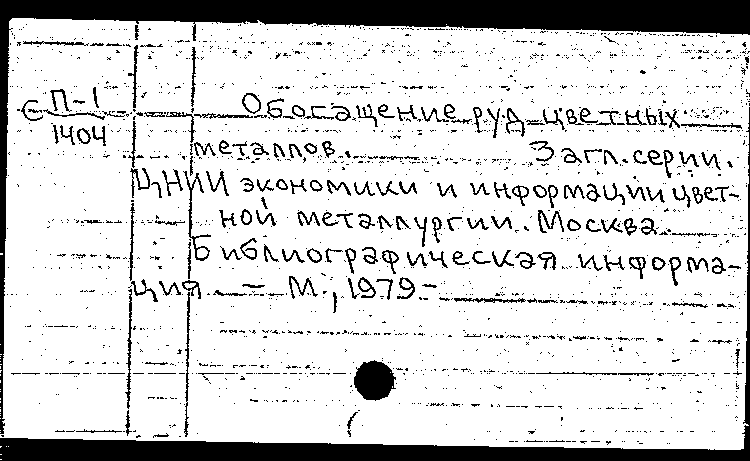 Є П-1
1404
Обогащение руд цветных
металлов. Загл. серии.
ЦНИИ экономики и информации цвет-
ной металлургии. Москва.
Библиографическая информа-
ция. — М., 1979-